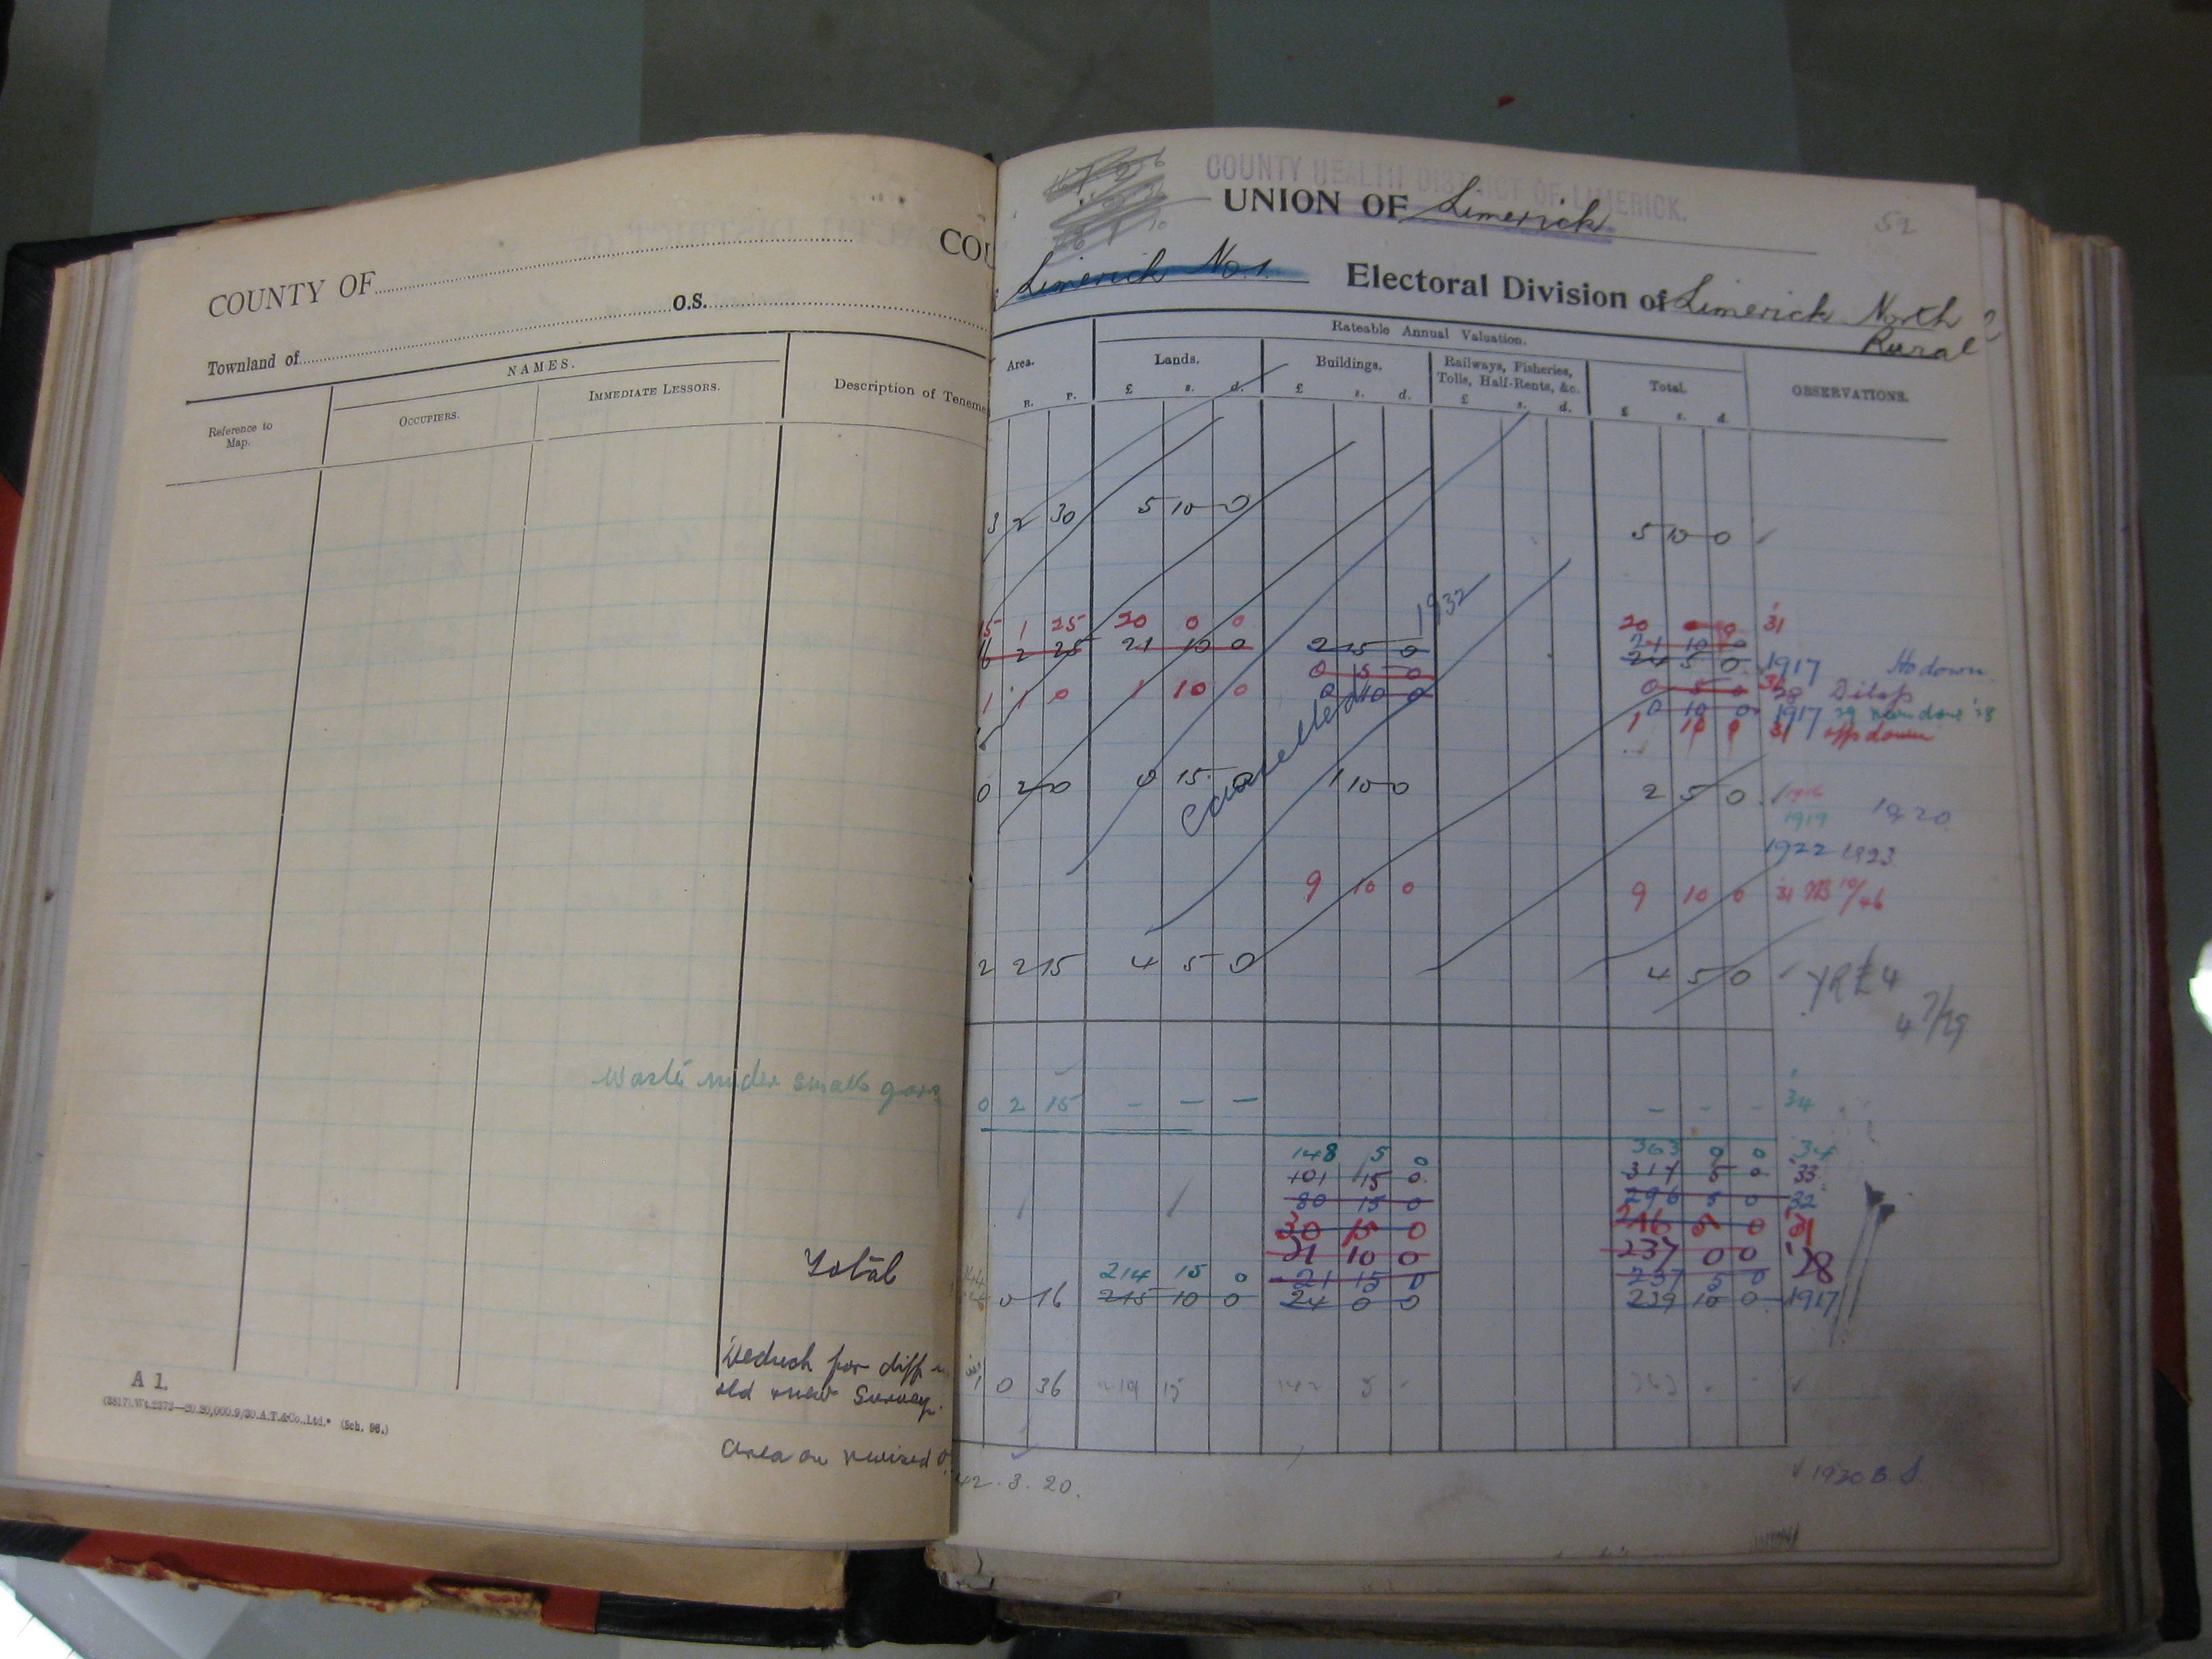 COUNTY OF
COU
O.S.
Townland of
NAMES.
Reference to
Map.
OCCUPIERS.
IMMEDIATE LESSORS.
Description of Teneme
Waste under small
Total
Deduct for diff
old & new Survey.
Area on revised
A 1.
COUNTY HEALTH DISTRICT OF LIMERICK.
UNION OF Limerick
52
Limerick No. 1. Electoral Division of Limerick North
Rural
Rateable Annual Valuation.
Area. Lands. Buildings. Railways, Fisheries,
Tolls, Half-Rents, &c. Total. OBSERVATIONS.
R. P. £ s. d. £ s. d. £ s. d. £ s. d.
3 2 30 5 10 0 5 10 0
Cancelled 1932
15 1 25 20 0 0 20 0 0 31
16 2 25 21 10 0 2 15 0 21 10 0
24 5 0 1917 Ho down
0 5 0 0 5 0 28 Dilap
1 1 0 1 10 0 0 10 0 0 10 0 1917
1 10 0 31 offs down
0 2 0 0 15 0 1 10 0 2 5 0 1916
1919 1920
1922 1923
9 10 0 9 10 0 31
2 2 15 4 5 0 4 5 0
0 2 15 – – – – – – 34
148 5 0 363 0 0 34
101 15 0 317 5 0 '33
80 15 0 296 5 0 32
30 15 0 246 5 0 '31
21 10 0 237 0 0 '28
214 15 0 21 15 0 237 5 0
0 16 215 10 0 24 0 0 239 10 0 1917
1 0 36
42. 3. 20.
1930 B. S.